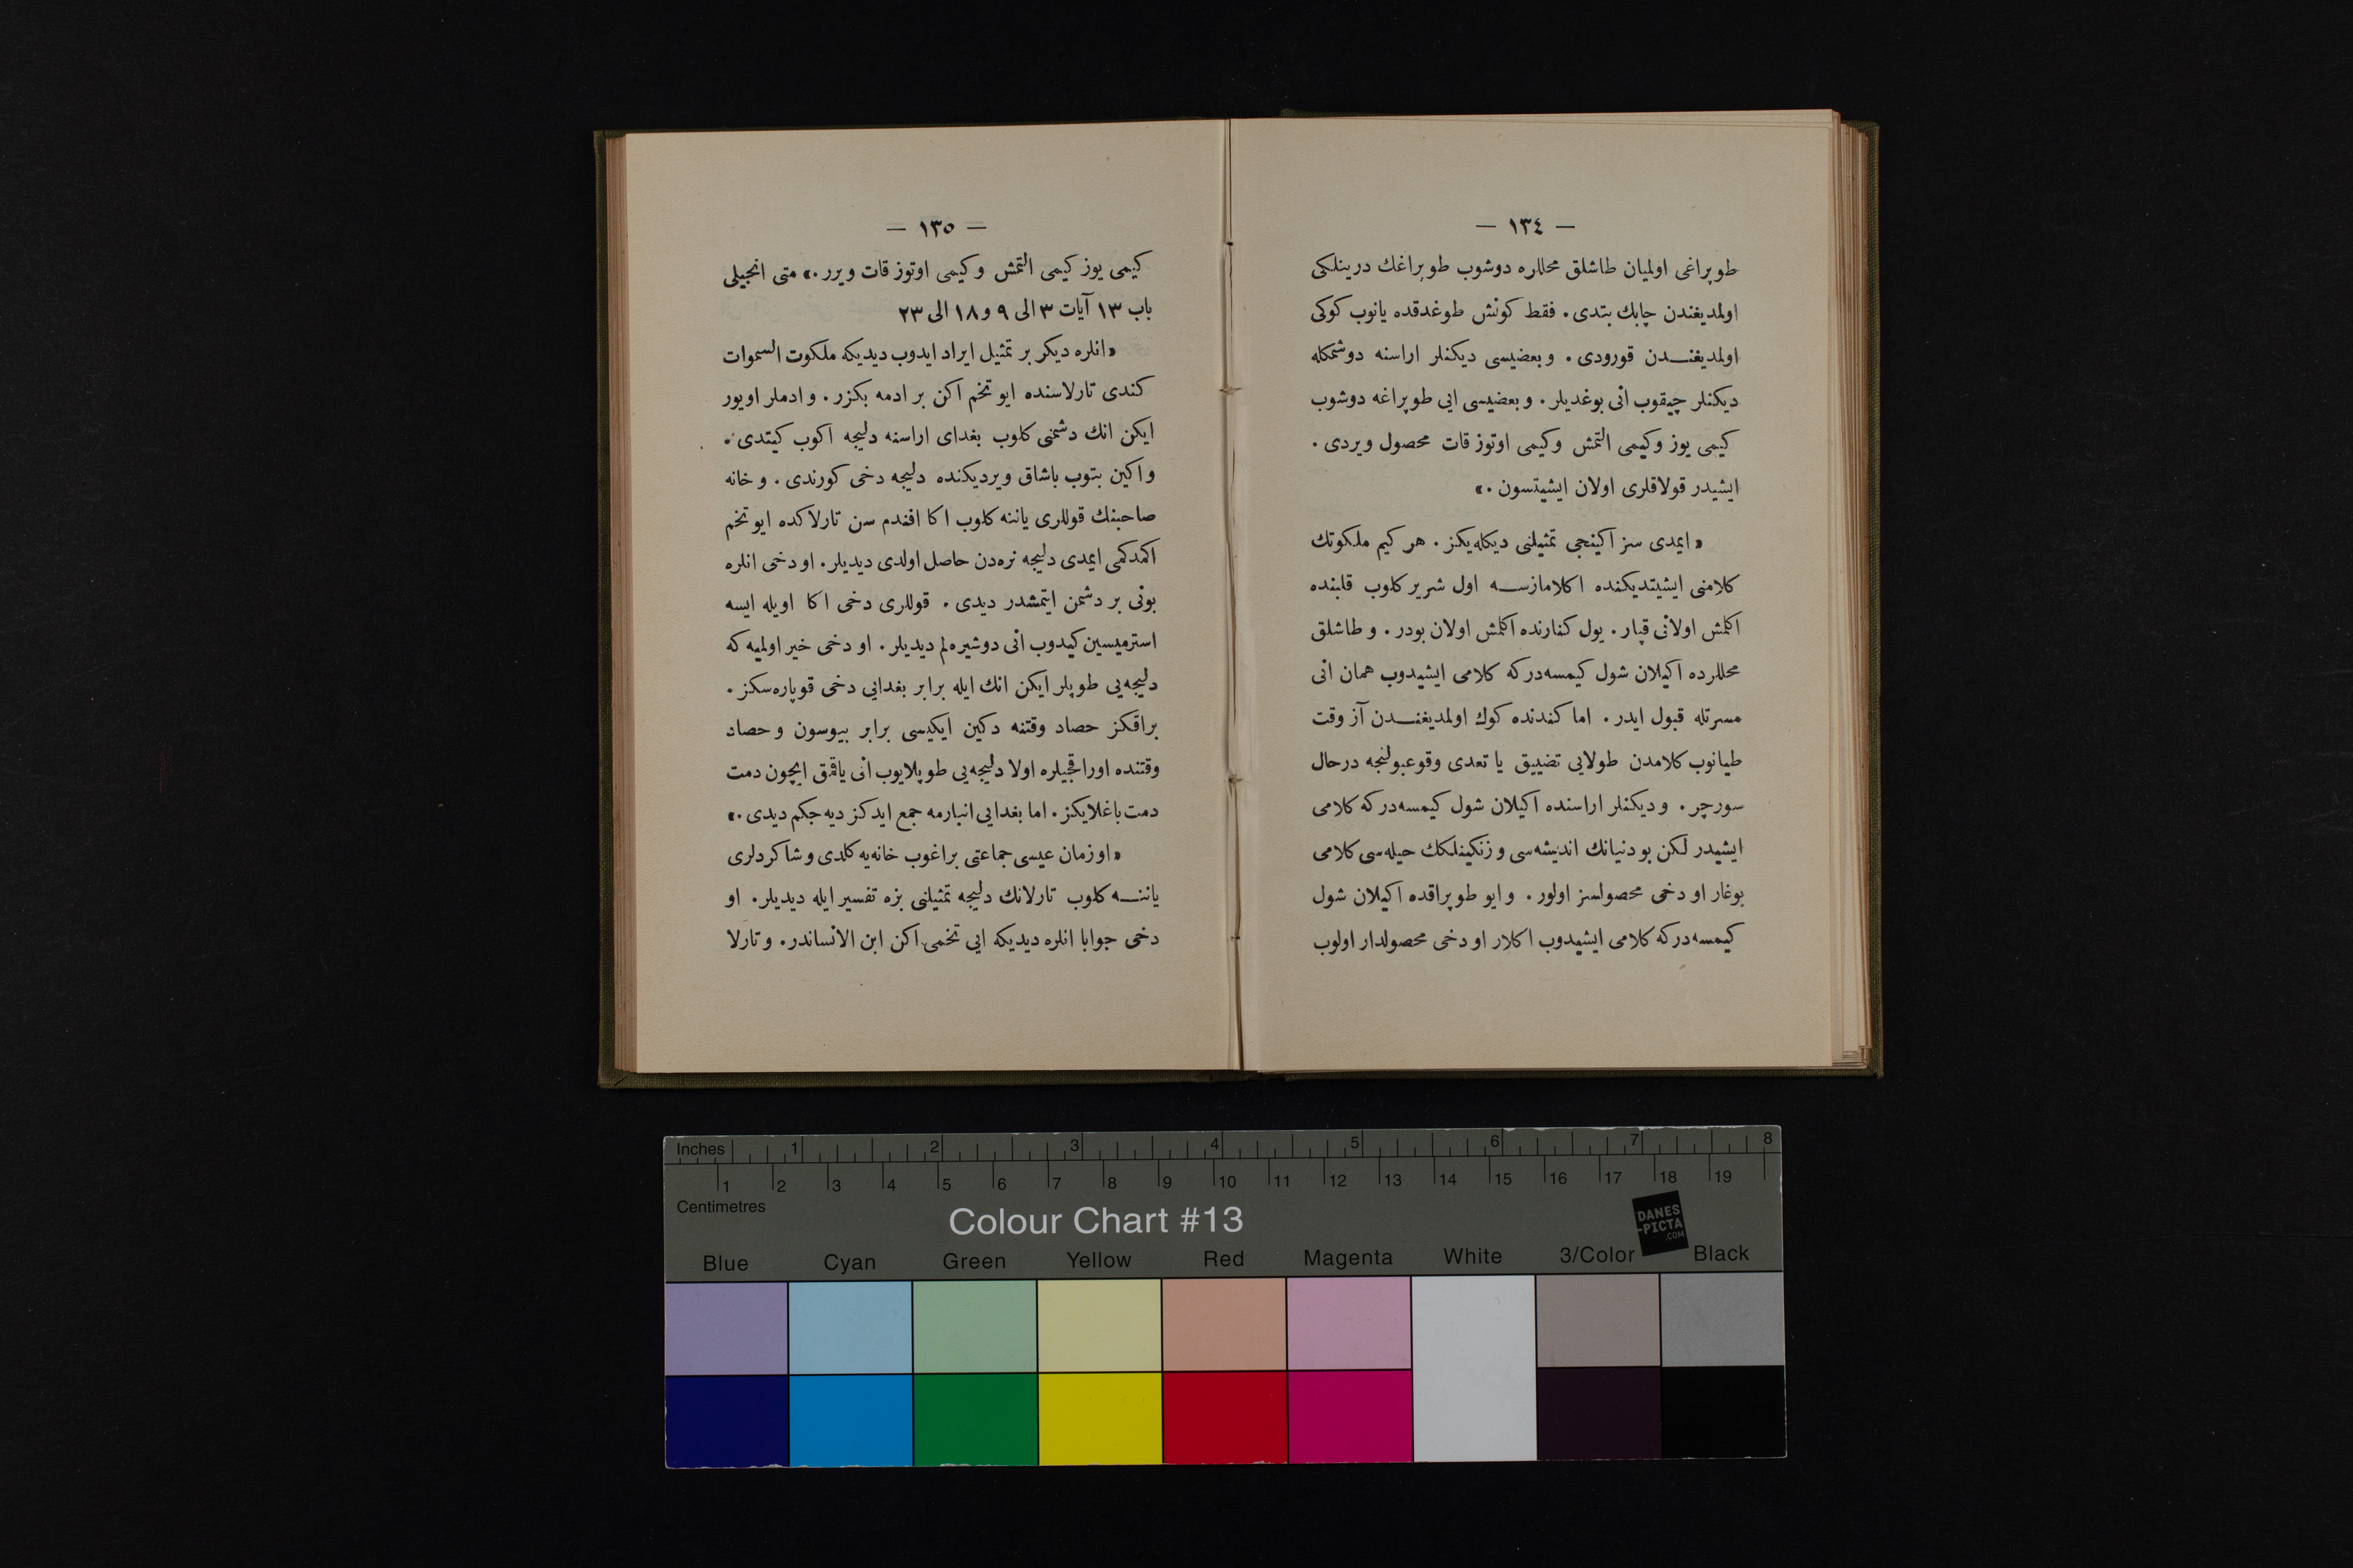 — ١٣٤ —
طوپراغی اولمیان طاشلق محللره دوشوب طوپراغك درینلكی
اولمدیغندن چابك بتدی. فقط كونش طوغدقده یانوب كوكی
اولمدیغندن قورودی. و بعضیسی دیكنلر اراسنه دوشمكله
دیكنلر چیقوب انی بوغدیلر. و بعضیسی ایی طوپراغه دوشوب
كیمی یوز وكیمی التمش وكیمی اوتوز قات محصول ویردی.
ایشیدر قولاقلری اولان ایشیتسون.»
« ایمدی سز اكینجی تمثیلنی دیكله یكز. هر كیم ملكوتك
كلامنی ایشیتدیكنده اكلامازسه اول شریر كلوب قلبنده
اكلمش اولانی قپار. یول كنارنده اكلمش اولان بودر. و طاشلق
محللرده اكیلان شول كیمسه در كه كلامی ایشیدوب همان انی
مسرتله قبول ایدر. اما كندنده كوك اولمدیغندن آز وقت
طیانوب كلامدن طولایی تضییق یا تعدی وقوعبولنجه درحال
سورچر. و دیكنلر اراسنده اكیلان شول كیمسه در كه كلامی
ایشیدر لكن بو دنیانك اندیشه سی و زنكینلكك حیله سی كلامی
بوغار او دخی محصولسز اولور. و ایو طوپراقده اكیلان شول
كیمسه در كه كلامی ایشیدوب اكلار او دخی محصولدار اولوب
— ١٣٥ —
كیمی یوز كیمی التمش و كیمی اوتوز قات ویرر.» متی انجیلی
باب ١٣ آیات ٣ الی ٩ و ١٨ الی ٢٣
«انلره دیكر بر تمثیل ایراد ایدوب دیدیكه ملكوت السموات
كندی تارلاسنده ایو تخم اكن بر ادمه بكزر. و ادملر اویور
ایكن انك دشمنی كلوب بغدای اراسنه دلیجه اكوب كیتدی.
و اكین بتوب باشاق ویردیكنده دلیجه دخی كورندی. و خانه
صاحبنك قوللری یاننه كلوب اكا افندم سن تارلاكده ایو تخم
اكمدكمی ایمدی دلیجه نره دن حاصل اولدی دیدیلر. او دخی انلره
بونی بر دشمن ایتمشدر دیدی. قوللری دخی اكا اویله ایسه
استرمیسین كیدوب انی دوشیره لم دیدیلر. او دخی خیر اولمیه كه
دلیجه یی طوپلر ایكن انك ایله برابر بغدایی دخی قوپاره سكز.
براقكز حصاد وقتنه دكین ایكیسی برابر بیوسون و حصاد
وقتنده اوراقجیلره اولا دلیجه یی طوپلایوب انی یاقمق ایچون دمت
دمت باغلایكز. اما بغدایی انبارمه جمع ایدكز دیه جكم دیدی.»
«اوزمان عیسی جماعتی براغوب خانه یه كلدی و شاكردلری
یاننه كلوب تارلانك دلیجه تمثیلنی بزه تفسیر ایله دیدیلر. او
دخی جوابا انلره دیدیكه ایی تخمی اكن ابن الانساندر. و تارلا
Inches 1 2 3 4 5 6 7 8
1 2 3 4 5 6 7 8 9 10 11 12 13 14 15 16 17 18 19
Centimetres
Colour Chart #13
DANES
-PICTA
.COM
Blue Cyan Green Yellow Red Magenta White 3/Color Black